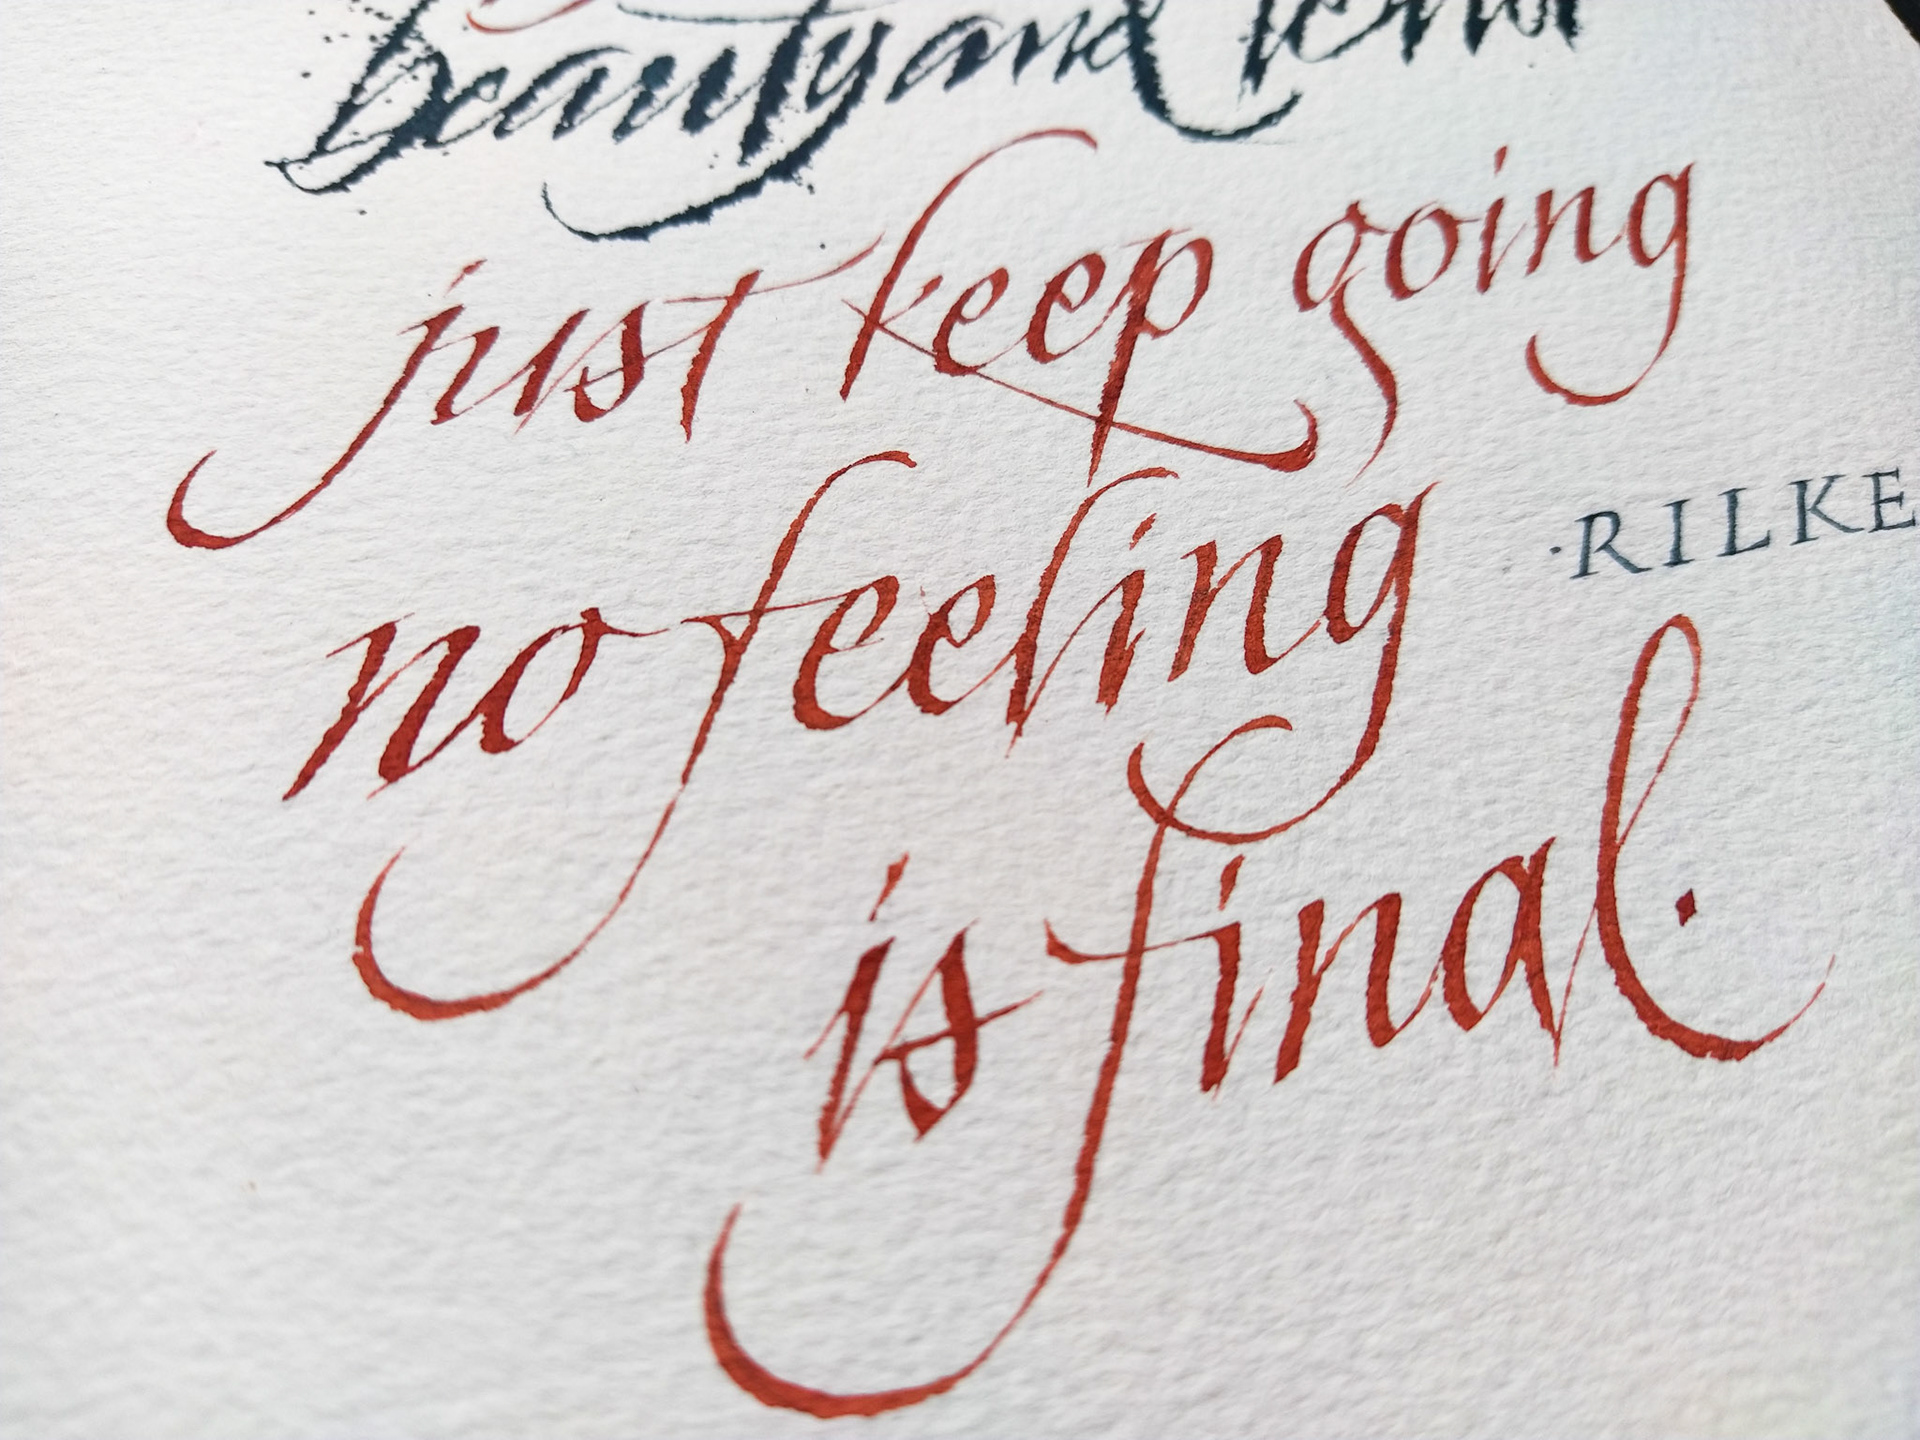 beauty and
just keep going
no feeling
·RILKE
is final.